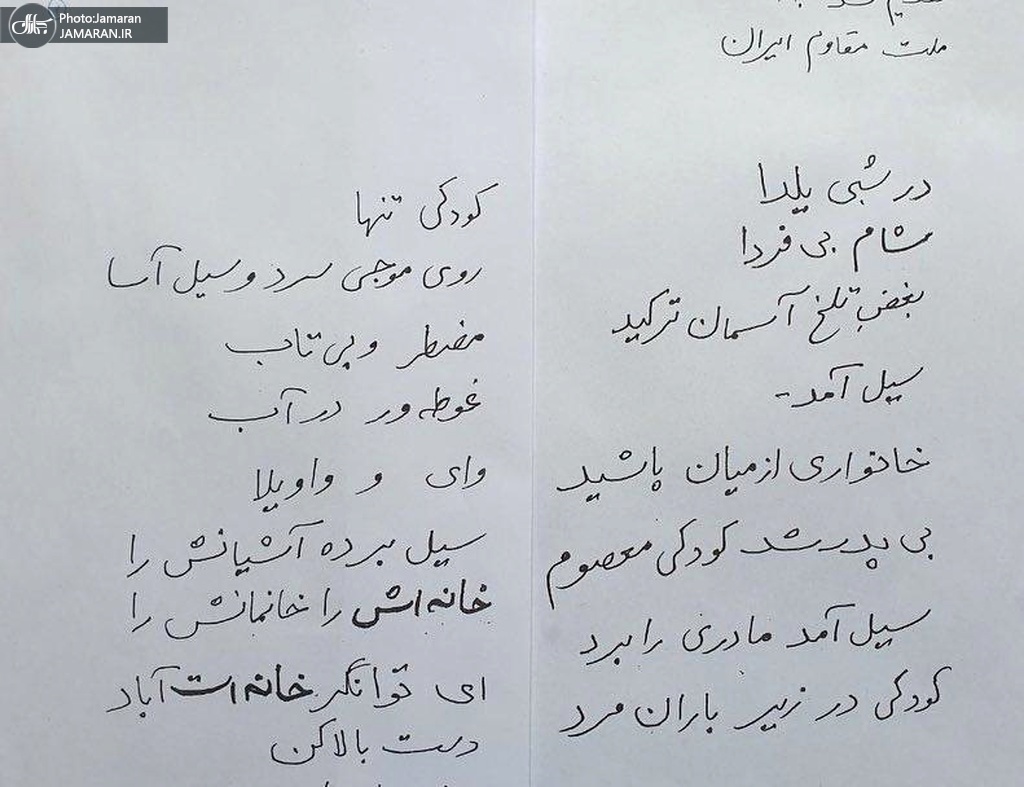 Photo:Jamaran
JAMARAN.IR
ملت مقاوم ایران
در شبی یلدا
شام بی فردا
بغضِ تلخ آسمان ترکید
سیل آمد-
خانواری از میان پاشید
بی پدر شد کودکی معصوم
سیل آمد مادری را برد
کودکی در زیر باران مرد
کودکی تنها
روی موجی سرد و سیل آسا
مضطر و بی تاب
غوطه ور در آب
وای و واویلا
سیل برده آشیانش را
خانه اش را خانمانش را
ای توانگر خانه ات آباد
دست بالا کن